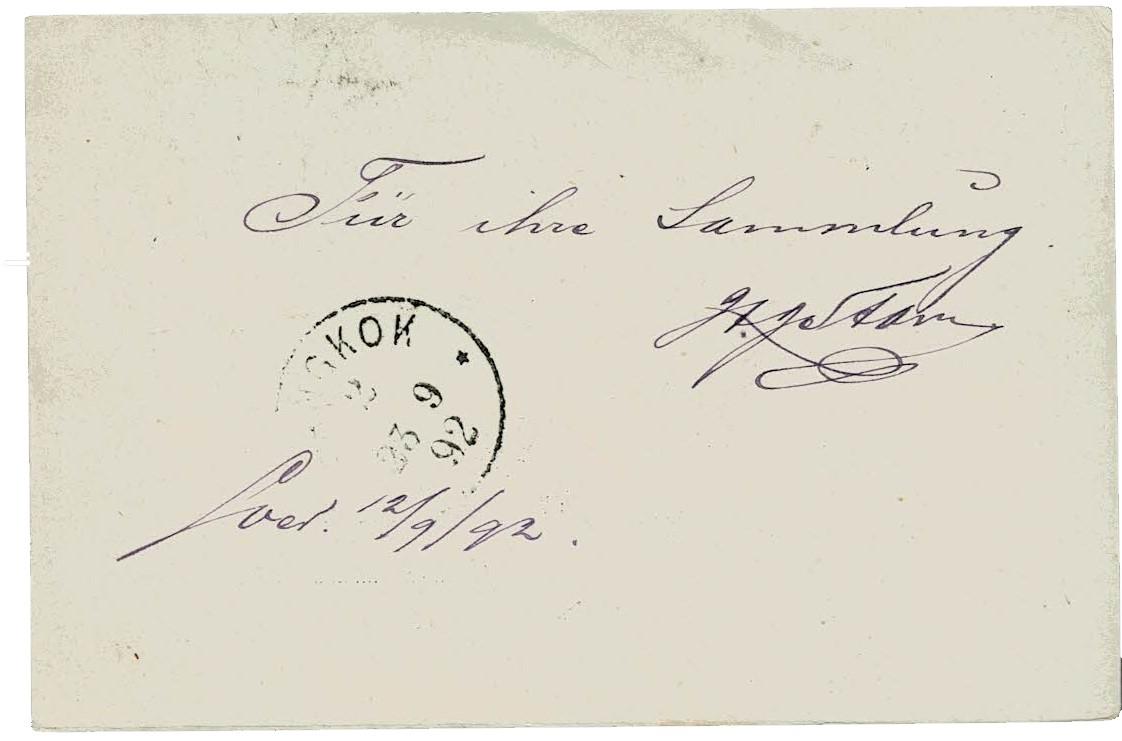 Für ihre Sammlung.
KOK
23 9
92
12/9/92.